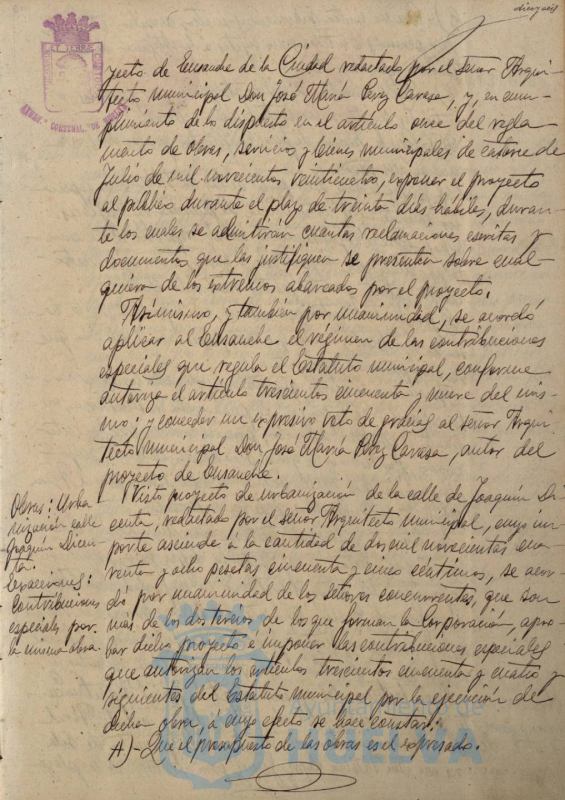 diez y seis
yecto de Ensanche de la Ciudad redactado por el señor Arqui-
tecto municipal Don José María Perez Carasa, y, en cum-
plimiento de lo dispuesto en el artículo once del regla-
mento de obras, servicios y bienes municipales de catorce de
Julio de mil novecientos veinticuatro, exponer el proyecto
al público durante el plazo de treinta días hábiles, duran-
te los cuales se admitirán cuantas reclamaciones escritas y
documentos que las justifiquen se presenten sobre cual-
quiera de los extremos abarcados por el proyecto.
Asimismo, y también por unanimidad, se acordó
aplicar al Ensanche el régimen de las contribuciones
especiales que regula el Estatuto municipal, conforme
autoriza el artículo trescientos cincuenta y nueve del mis-
mo; y conceder un expresivo voto de gracias al señor Arqui-
tecto municipal Don José María Perez Carasa, autor del
proyecto de Ensanche.
Obras: Urba
nización calle
Joaquín Dicen-
ta.
Exacciones:
Contribuciones
especiales por
la misma obra
Visto proyecto de urbanización de la calle de Joaquín Di-
centa, redactado por el señor Arquitecto municipal, cuyo im-
porte asciende á la cantidad de dos mil novecientas cua-
renta y ocho pesetas cincuenta y cinco centimos, se acor-
dó por unanimidad de los señores concurrentes, que son
mas de los dos tercios de los que forman la Corporación, apro-
bar dicho proyecto e imponer las contribuciones especiales
que autorizan los artículos trescientos cincuenta y cuatro y
siguientes del Estatuto municipal por la ejecución de
dicha obra, á cuyo efecto se hace constar:
A)- Que el presupuesto de las obras es el expresado.
Ayuntamiento de
HUELVA